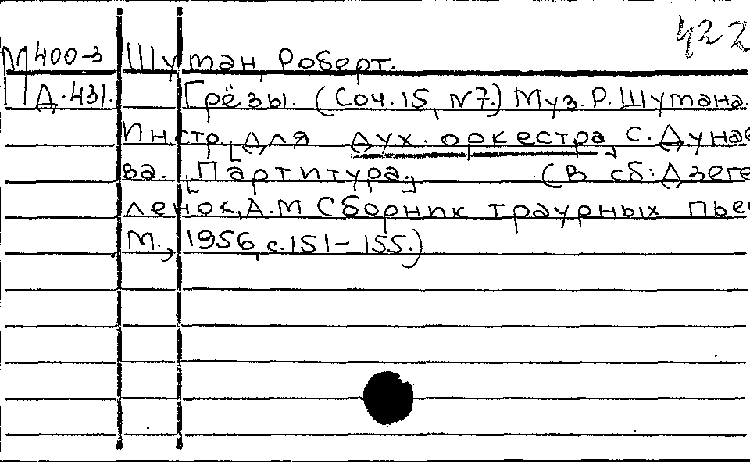 422
М400-3 Шуман, Роберт.
Д.431. Грёзы. (Соч.15, N7.) Муз. Р. Шумана.
Инстр. [для дух. оркестра] С. Дунае
ва. [Партитура.] (В сб: Дзеге
ленок, А.М Сборник траурных пьес
М., 1956, с.151-155.)